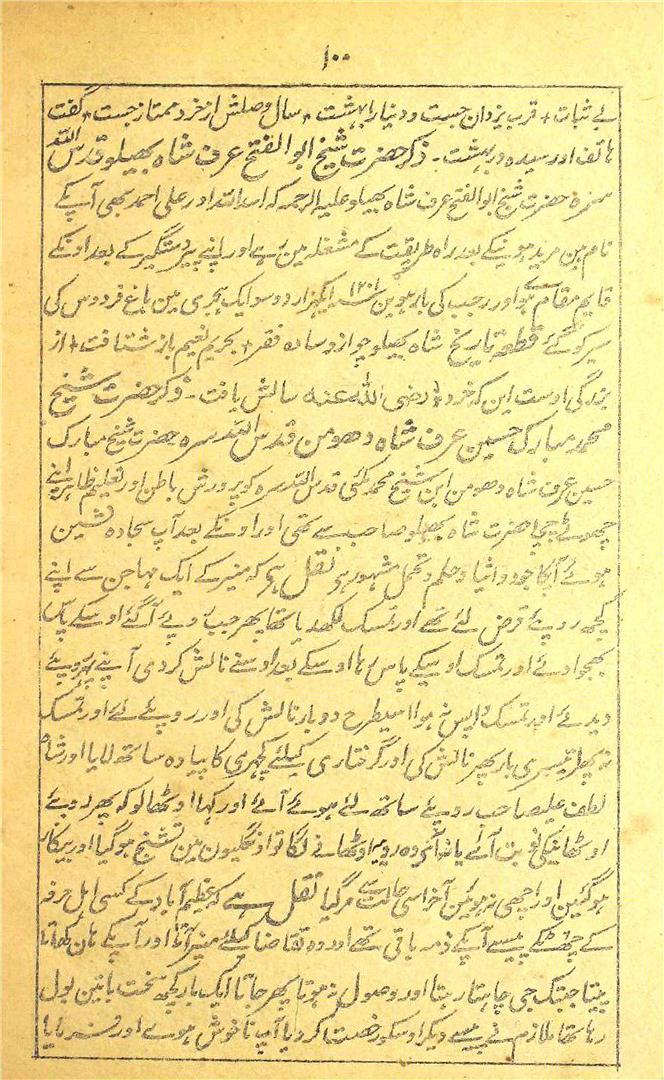 ۱۰۰
بے ثبات + قرب یزدان جست و دنیا را بہشت + سال وصلش از خرد ممتاز جست + گفت
ہاتف اور سیدہ در بہشت - ذکر حضرت شیخ ابو الفتح عرف شاہ بھیلو قدس اللہ
سرہ حضرت شیخ ابو الفتح عرف شاہ بھیلو علیہ الرحمہ کہ اسد اللہ اور علی احمد بھی آپکے
نام ہین مرید ہونیکے بعد راہ طریقت کے مشغلہ مین رہے اور اپنے پیر دستگیر کے بعد اونکے
قایم مقام ہوے اور رجب کی بارہوین ۱۲۰۱ ایکہزار دو سو ایک ہجری مین باغ فردوس کی
سیر کو گئے قطعہ تاریخ شاہ بھیلو چو از وسادہ فقر + بحریم نعیم باز شتافت + از
بزرگی اوست این کہ خرد + رضی اللہ عنہ سالش یافت - ذکر حضرت شیخ
محمد مبارک حسین عرف شاہ دھومن قدس اللہ سرہ حضرت شیخ مبارک
حسین عرف شاہ دھومن ابن شیخ محمد مکی قدس اللہ سرہ کو پرورش باطن اور تعلیم ظاہر اپنے
چھوٹے چچا حضرت شاہ بھیلو صاحب سے تھی اور اونکے بعد آپ سجادہ نشین
ہوئے آپکا جود و اثیار و حلم و تحمل مشہور ہی نقل ہی کہ منیر کے ایک مہاجن سے اپنے
کچھ روپئے قرض لئے تھے اور تمسک لکھدیا تھا پھر جب روپے آگئے اوسکے پاس
بھجوا دئے اور تمسک اوسیکے پاس رہا اوسکے بعد اوسنے نالش کر دی آپنے پھر روپئے
دیدئے اور تمسک واپس نہ ہوا اسیطرح دوبار نالش کی اور روپئے لئے اور تمسک
نہ پھیرا تیسری بار پھر نالش کی اور گرفتاری کیلئے کچہری کا پیادہ ساتھ لایا اور شاہ
لطف علیصاحب روپئے ساتھ لئے ہوئے آئے اور کہا اوٹھالو کہ پھر روپئے
اوٹھانیکی نوبت آئے یا نہ آئے وہ روپیہ اوٹھانے لگا تو اونگلیون مین تشنج ہو گیا اور بیکار
ہو گئین اور اچھی نہ ہوئین آخر اسی حالت سے مر گیا نقل ہے کہ عظیم آباد کے کسی اہل حرفہ
کے چھ ٹکے پیسے آپکے ذمہ باقی تھے اور وہ تقاضا کیلئے منیر آتا اور آپکے ہان کھاتا
پیتا جبتک جی چاہتا رہتا اور وصول نہ ہوتا پھر جاتا ایک بار کچھ سخت باتین بول
رہا تھا ملازم نے پیسے دیکر اوسکو رخصت کر دیا آپ ناخوش ہوے اور فرمایا